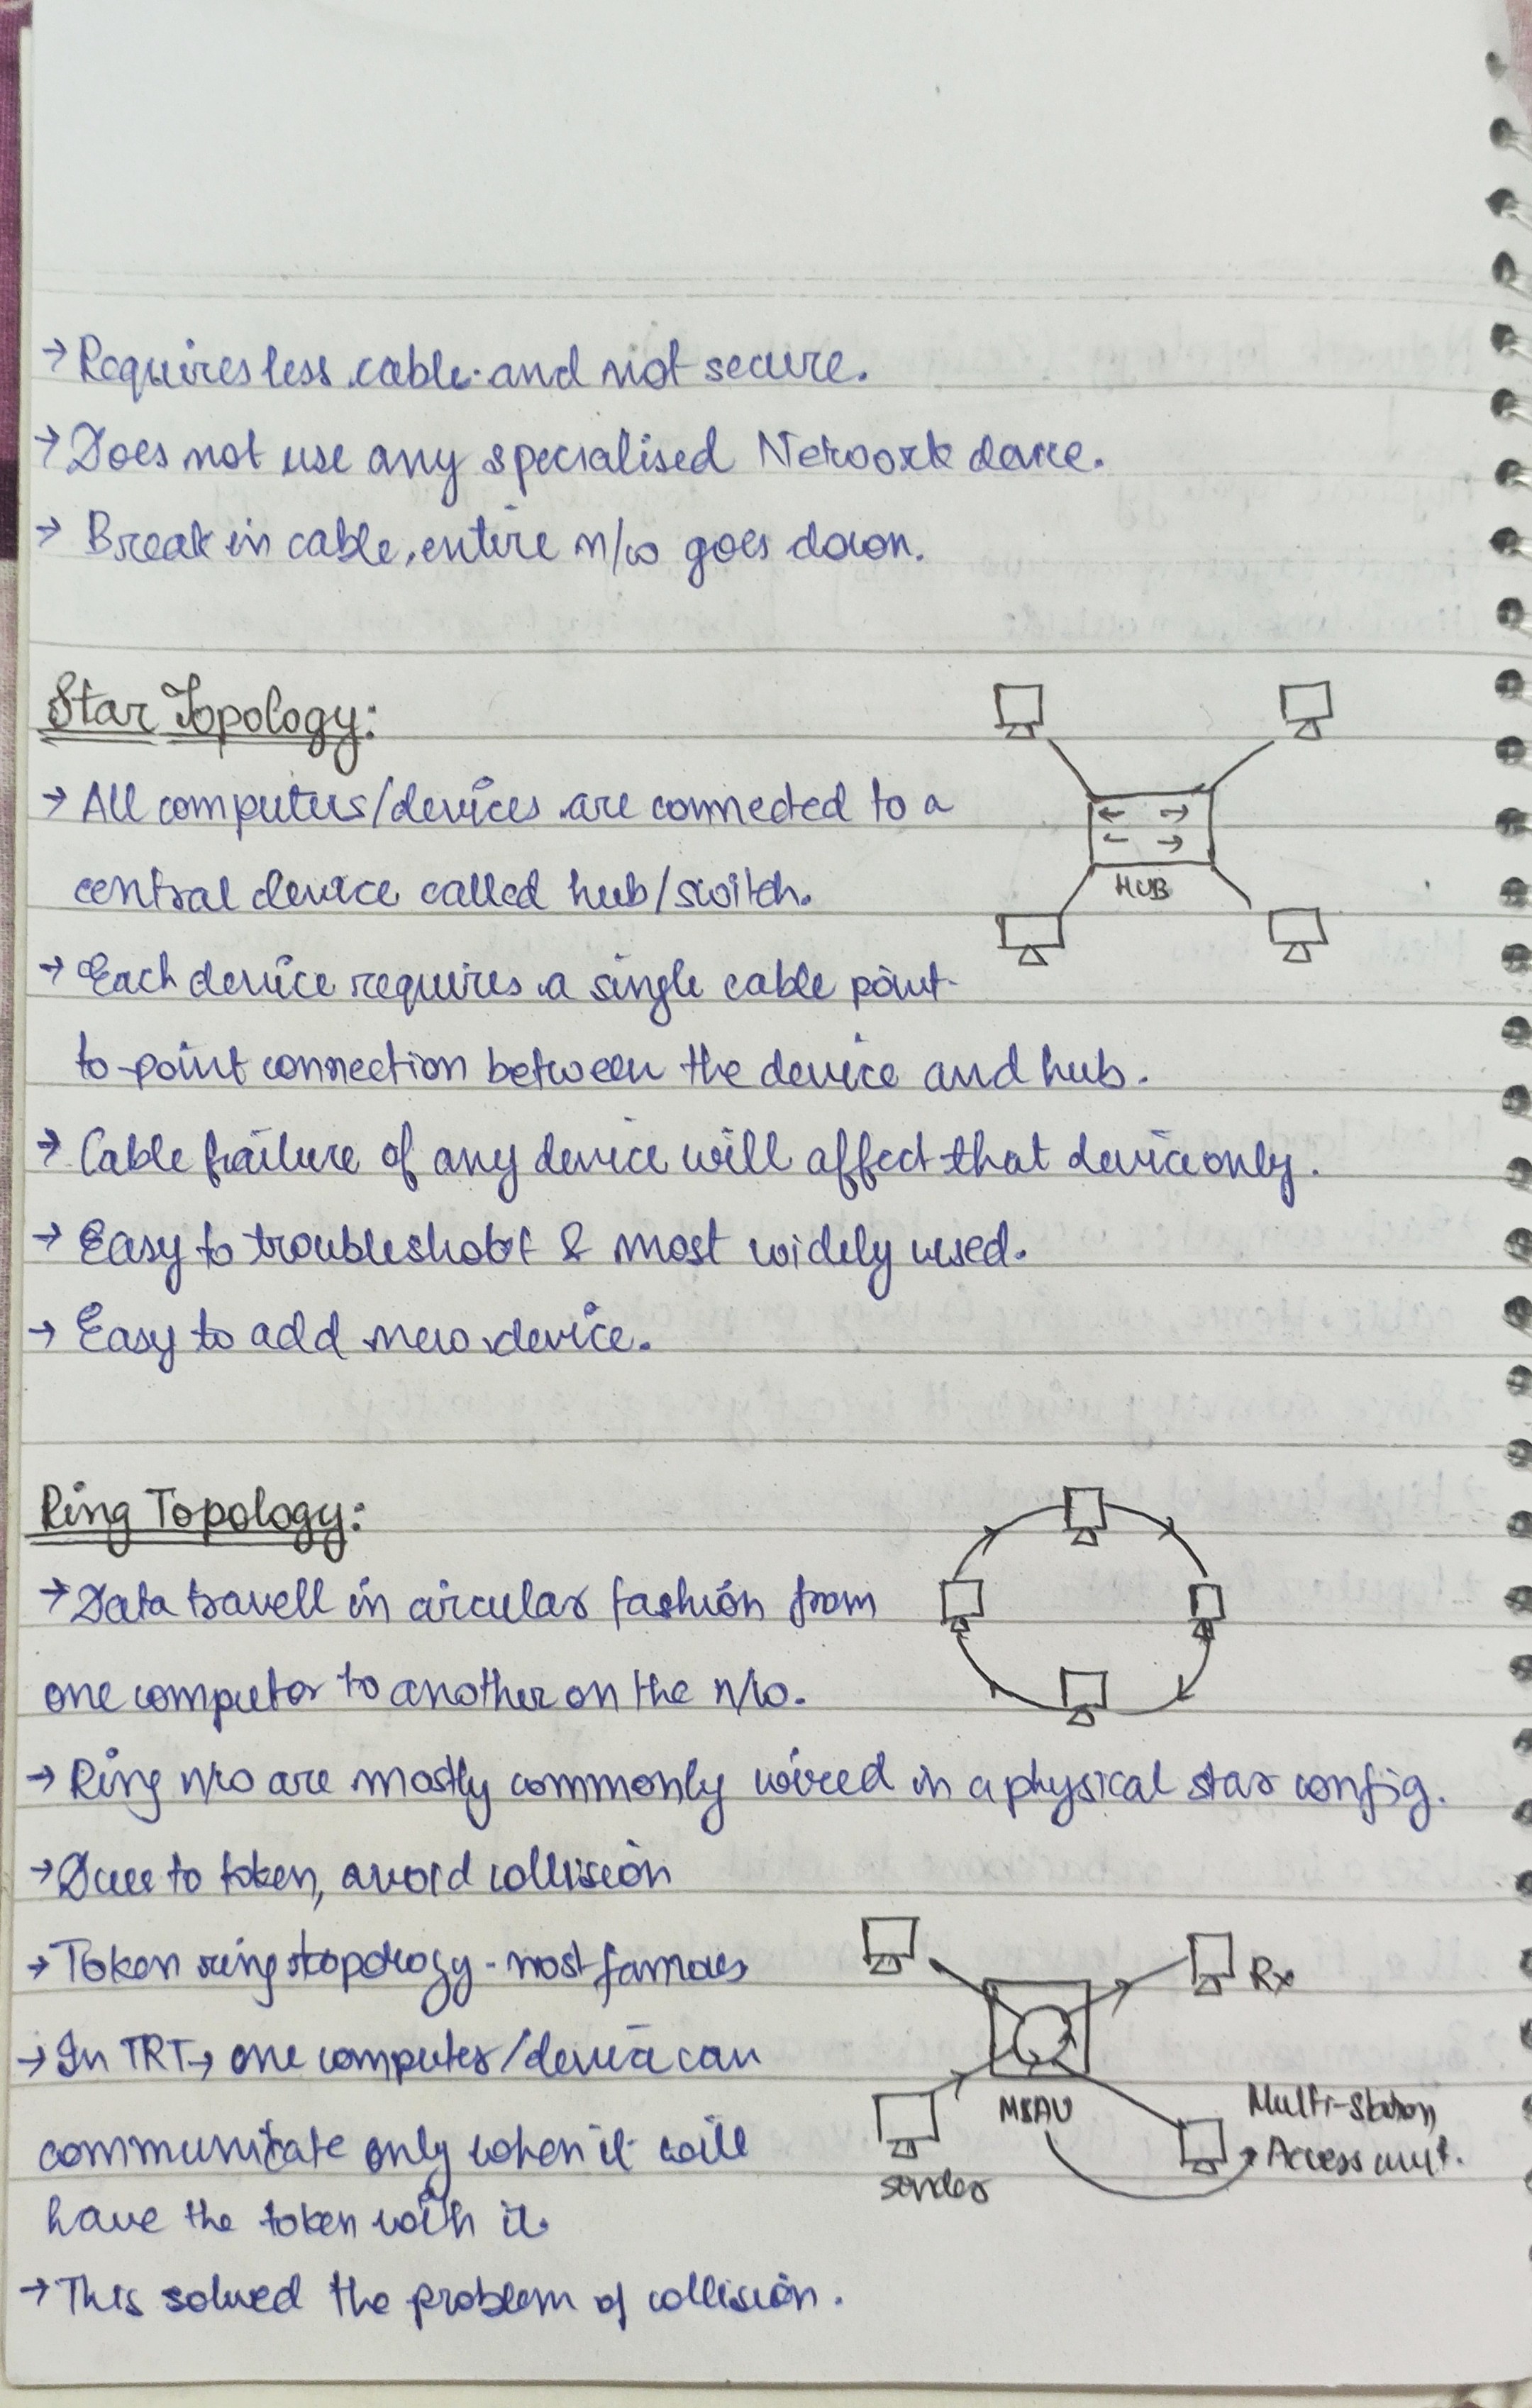 → Requires less cable and not secure.
→ Does not use any specialised Network device.
→ Break in cable, entire n/w goes down.
Star Topology:
→ All computers/devices are connected to a
central device called hub/switch.
HUB
→ Each device requires a single cable point-
to-point connection between the device and hub.
→ Cable failure of any device will affect that device only.
→ Easy to troubleshoot & most widely used.
→ Easy to add new device.
Ring Topology:
→ Data travell in circular fashion from
one computer to another on the n/w.
→ Ring n/w are mostly commonly wired in a physical star config.
→ Due to token, avoid collision
→ Token ring topology - most famous
Rx
→ In TRT → one computer/device can
MSAU
Multi-Station
Access unit.
communicate only when it will
sender
have the token with it.
→ This solved the problem of collision.